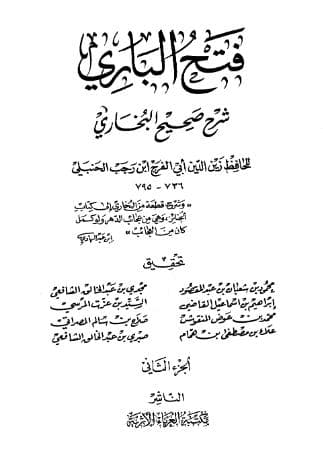 فتح الباري
شرح صحيح البخاري
للحافظ زين الدين أبي الفرج ابن رجب الحنبلي
٧٣٦ - ٧٩٥
« وشرح قطعة من البخاري إلى كتاب
الجنائز، وهي من عجائب الدهر ولو كمل
كان من العجائب »
ابن عبد الهادي
تحقيق
محمود بن شعبان بن عبد المقصود
مجدي بن عبد الخالق الشافعي
إبراهيم بن إسماعيل القاضي
السيد بن عزت المرسي
محمد بن عوض المنقوش
صلاح بن سالم المصراتي
علاء بن مصطفى بن همام
صبري بن عبد الخالق الشافعي
الجزء الثاني
الناشر
مكتبة الغرباء الأثرية